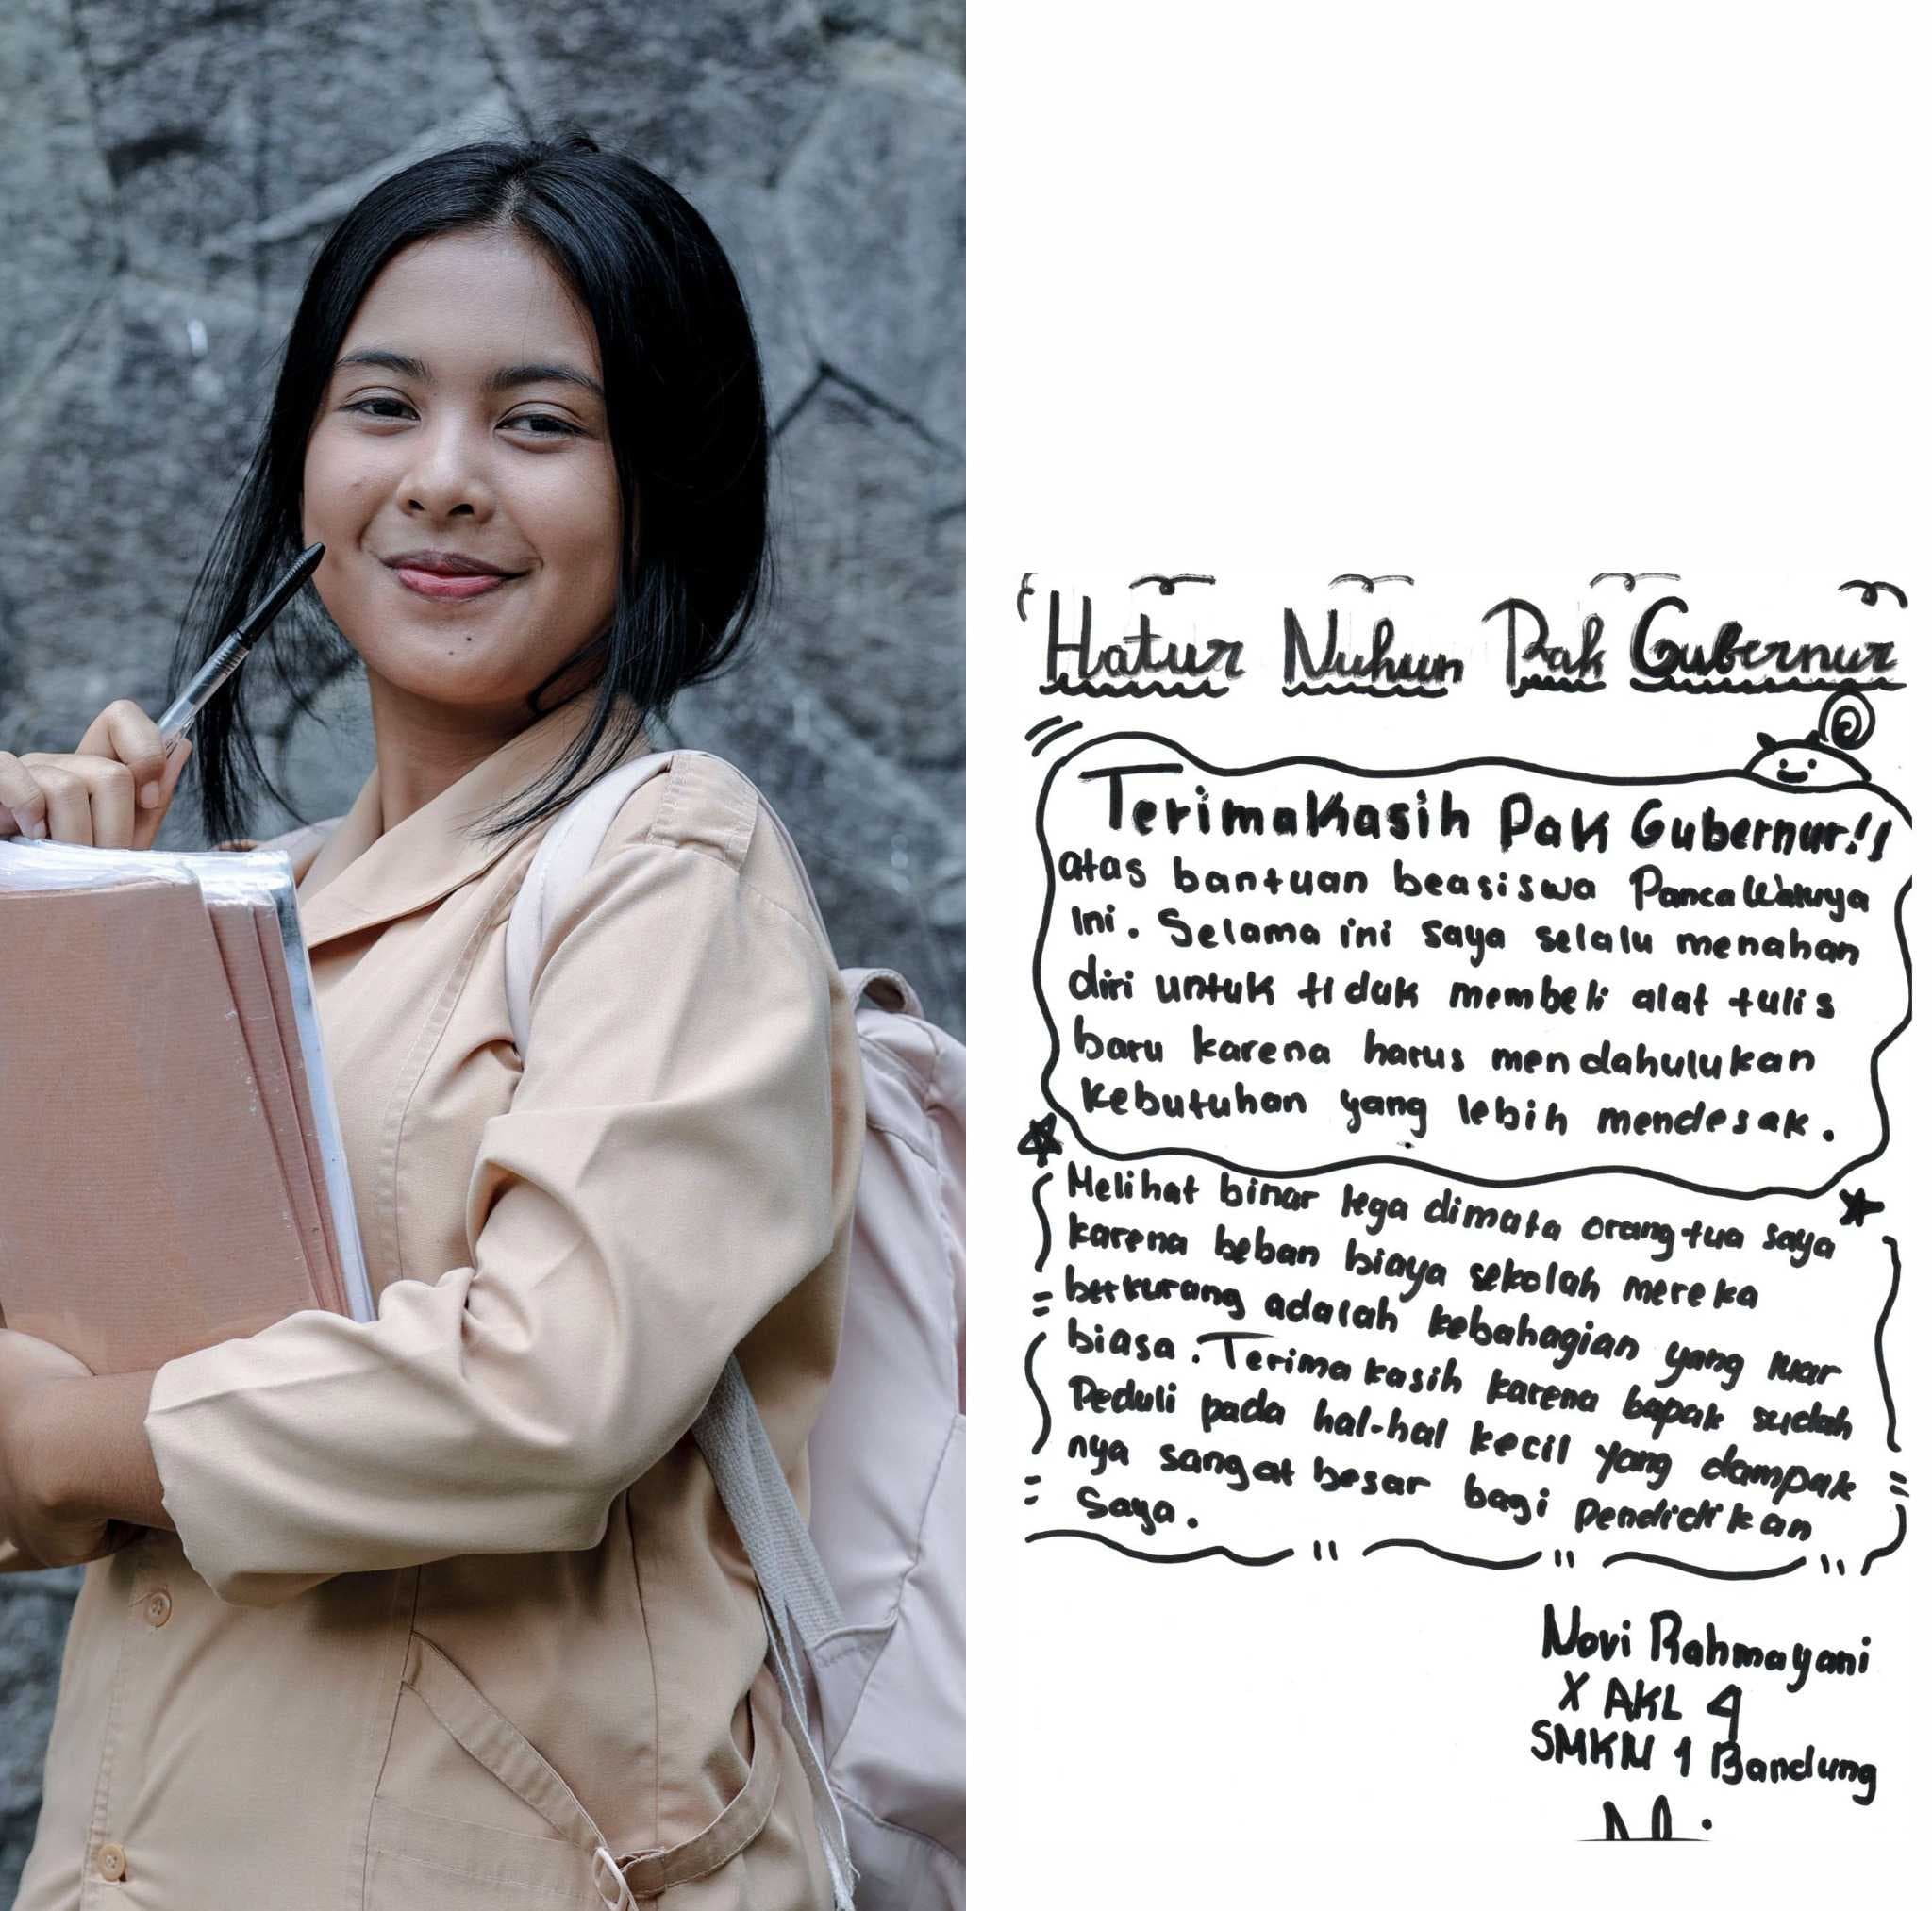 Hatur Nuhun Pak Gubernur
Terimakasih Pak Gubernur!!
atas bantuan beasiswa Panca Waluya
ini. Selama ini saya selalu menahan
diri untuk tiduk membeli alat tulis
baru karena harus mendahulukan
kebutuhan yang lebih mendesak.
Melihat binar lega dimata orang tua saya
karena beban biaya sekolah mereka
berkurang adalah kebahagian yang luar
biasa. Terima kasih karena bapak sudah
Peduli pada hal-hal kecil yang dampak
nya sangat besar bagi Pendidikan
Saya.
Novi Rahmayani
X AKL 4
SMKN 1 Bandung